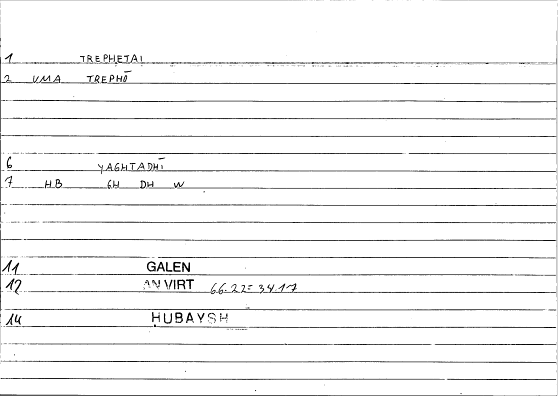 1 TREPHETAI
2 VMA TREPHŌ
6 YAGHTADHĪ
7 HB GH DH W
11 GALEN
12 AN VIRT 66.22=34.17
14 HUBAYSH